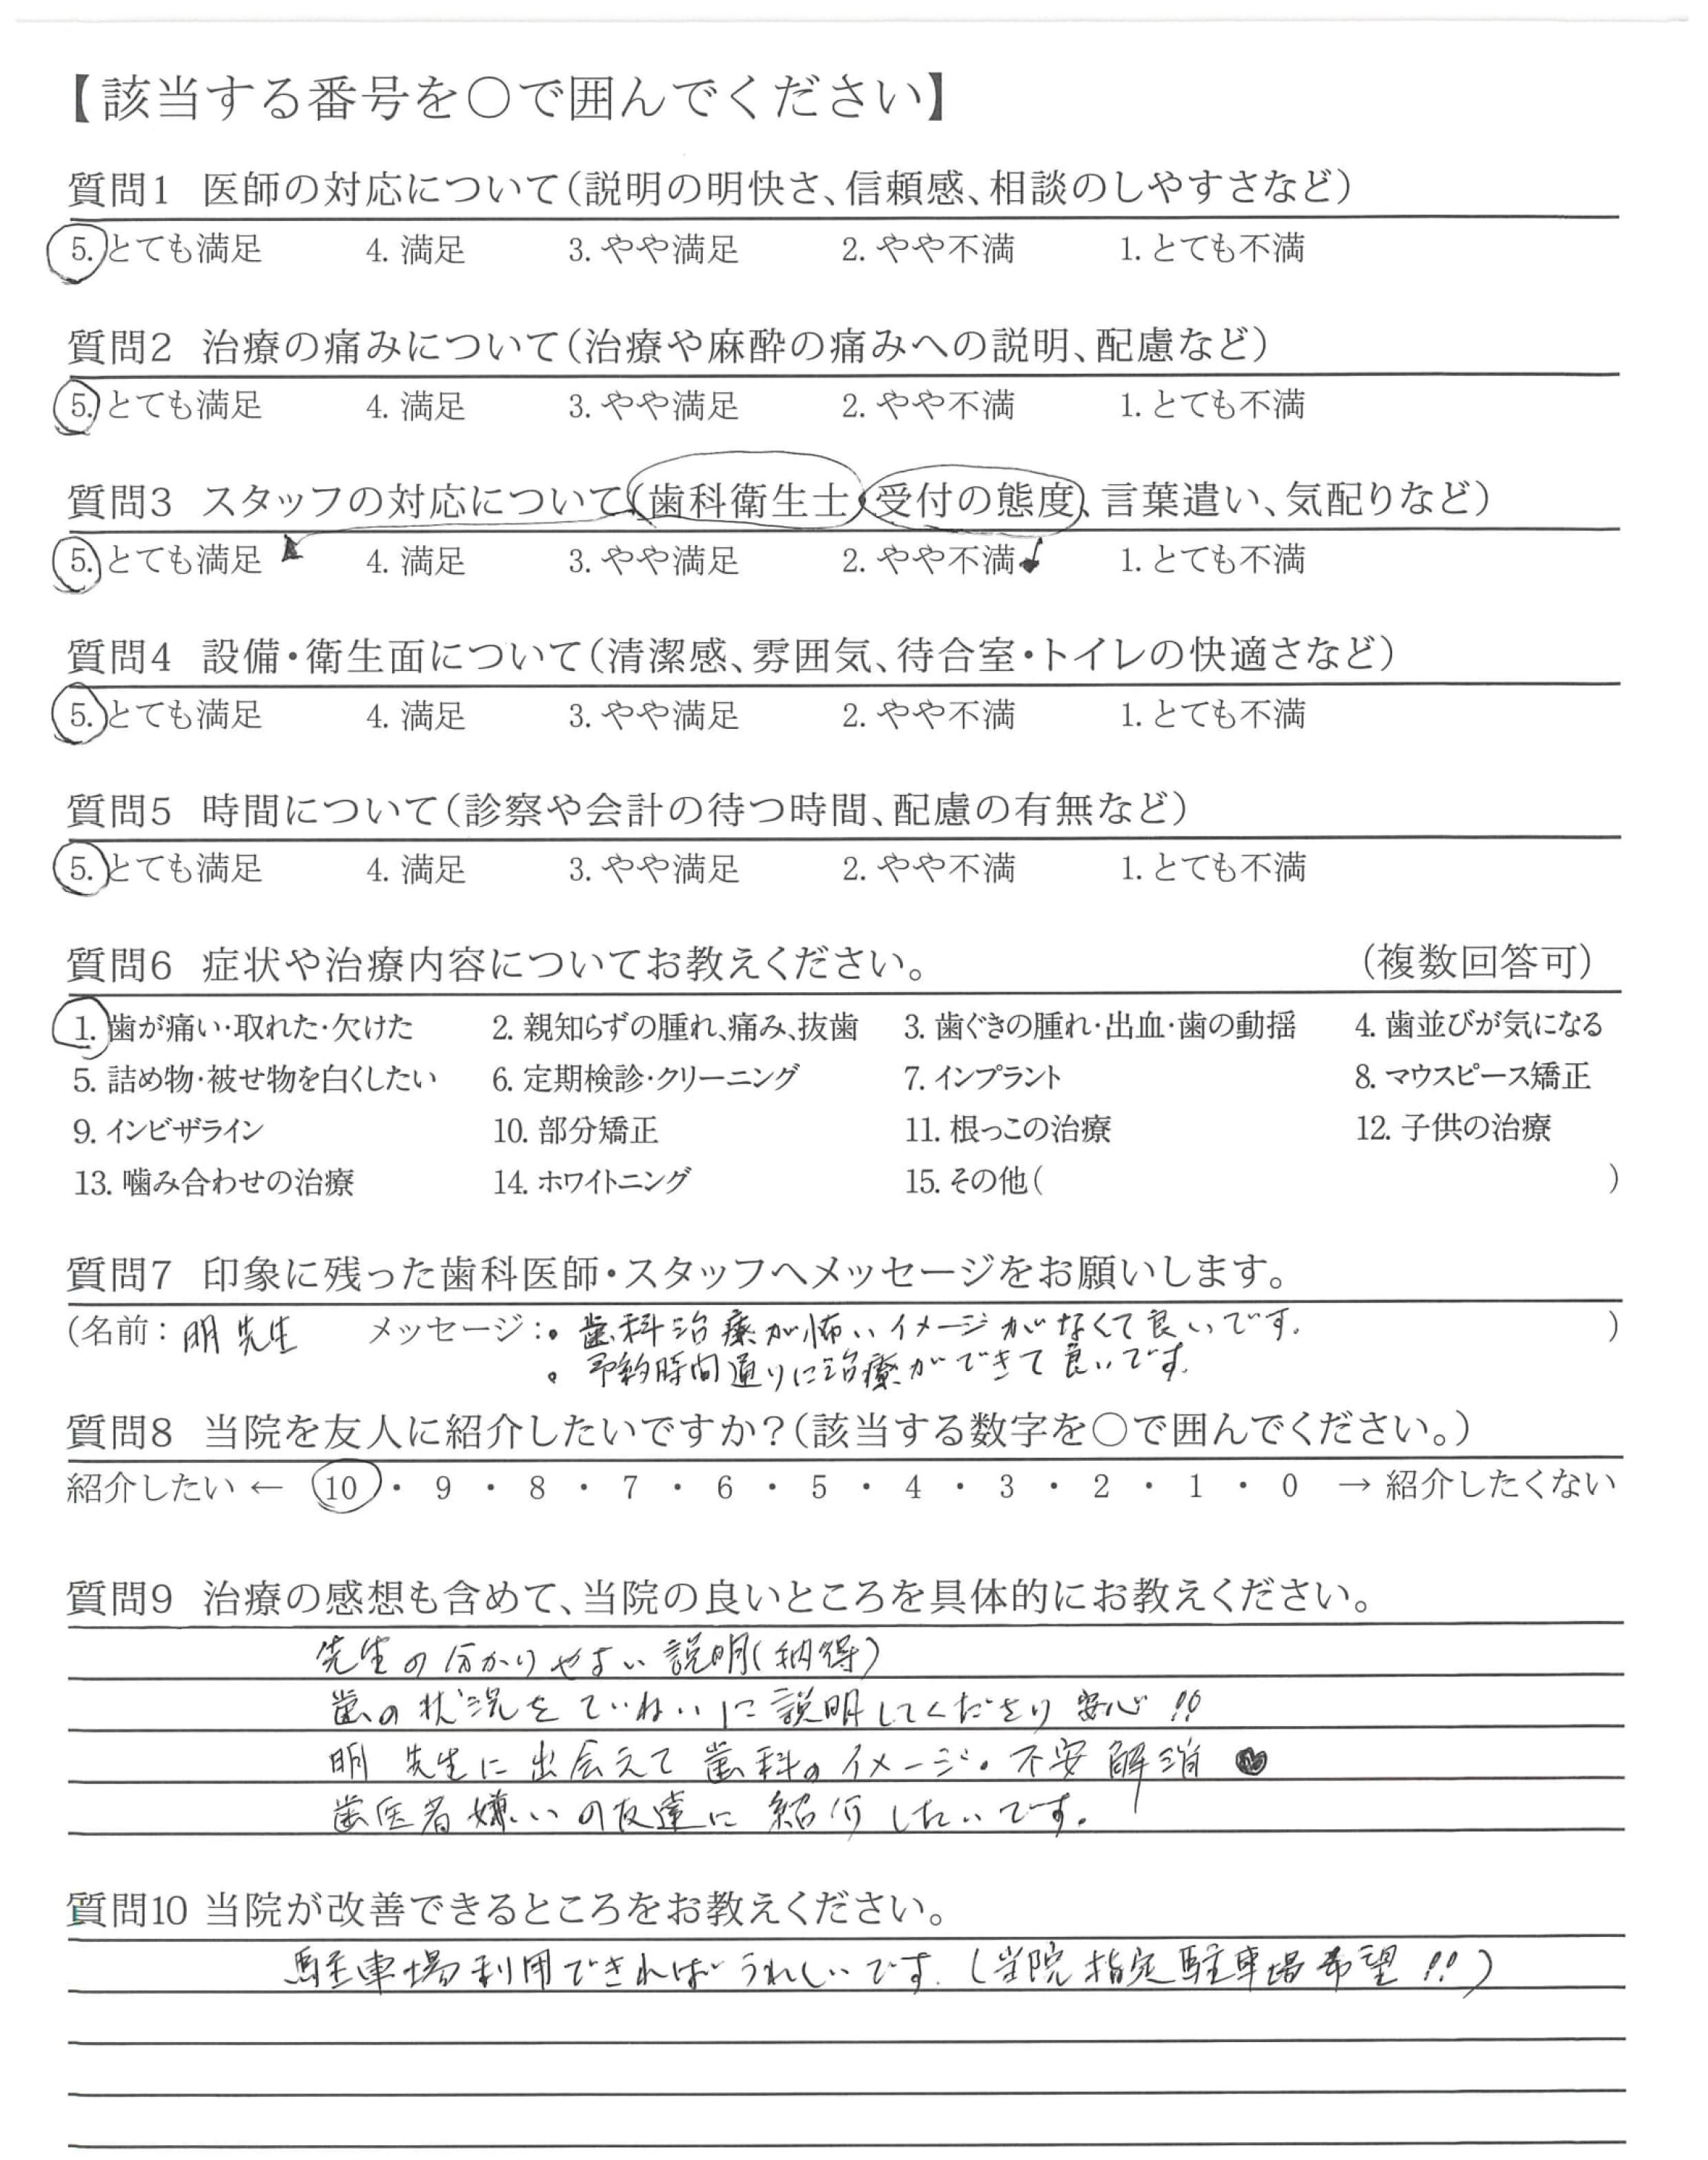 【該当する番号を○で囲んでください】
質問1 医師の対応について(説明の明快さ、信頼感、相談のしやすさなど)
5. とても満足 4. 満足 3. やや満足 2. やや不満 1. とても不満
質問2 治療の痛みについて(治療や麻酔の痛みへの説明、配慮など)
5. とても満足 4. 満足 3. やや満足 2. やや不満 1. とても不満
質問3 スタッフの対応について(歯科衛生士・受付の態度、言葉遣い、気配りなど)
5. とても満足 4. 満足 3. やや満足 2. やや不満 1. とても不満
質問4 設備・衛生面について(清潔感、雰囲気、待合室・トイレの快適さなど)
5. とても満足 4. 満足 3. やや満足 2. やや不満 1. とても不満
質問5 時間について(診察や会計の待つ時間、配慮の有無など)
5. とても満足 4. 満足 3. やや満足 2. やや不満 1. とても不満
質問6 症状や治療内容についてお教えください。 (複数回答可)
1. 歯が痛い・取れた・欠けた 2. 親知らずの腫れ、痛み、抜歯 3. 歯ぐきの腫れ・出血・歯の動揺 4. 歯並びが気になる
5. 詰め物・被せ物を白くしたい 6. 定期検診・クリーニング 7. インプラント 8. マウスピース矯正
9. インビザライン 10. 部分矯正 11. 根っこの治療 12. 子供の治療
13. 噛み合わせの治療 14. ホワイトニング 15. その他( )
質問7 印象に残った歯科医師・スタッフへメッセージをお願いします。
(名前: 明先生 メッセージ:。歯科治療が怖いイメージがなくて良いです. )
。予約時間通りに治療ができて良いです.
質問8 当院を友人に紹介したいですか?(該当する数字を○で囲んでください。)
紹介したい ← 10 ・ 9 ・ 8 ・ 7 ・ 6 ・ 5 ・ 4 ・ 3 ・ 2 ・ 1 ・ 0 → 紹介したくない
質問9 治療の感想も含めて、当院の良いところを具体的にお教えください。
先生の分かりやすい説明(納得)
歯の状況をていねいに説明してくださり安心!!
明先生に出会えて歯科のイメージ・不安解消♥
歯医者嫌いの友達に紹介したいです.
質問10 当院が改善できるところをお教えください。
駐車場利用できればうれしいです.(当院指定駐車場希望!!)